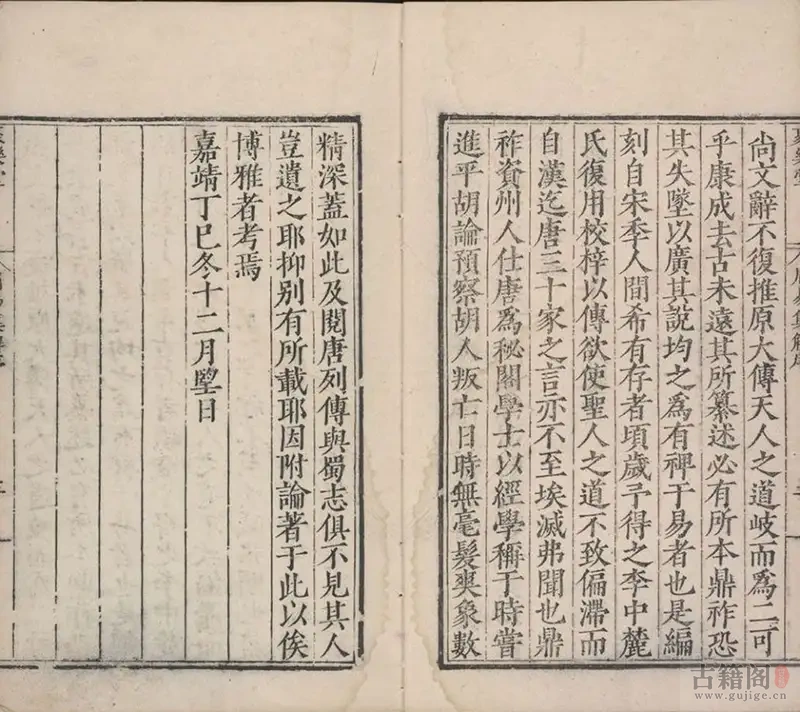 尙文辭不復推原大傳天人之道岐而爲二可
乎康成去古未遠其所纂述必有所本鼎祚恐
其失墜以廣其說均之爲有裨于易者也是編
刻自宋季人間希有存者頃歲予得之李中麓
氏復用校梓以傳欲使聖人之道不致偏滯而
自漢迄唐三十家之言亦不至埃滅弗聞也鼎
祚資州人仕唐爲秘閣學士以經學稱于時嘗
進平胡論預察胡人叛亡日時無毫髮爽象數
精深蓋如此及閱唐列傳與蜀志俱不見其人
豈遺之耶抑别有所載耶因附論著于此以俟
博雅者考焉
嘉靖丁巳冬十二月朢日
古籍阁
www.gujige.cn